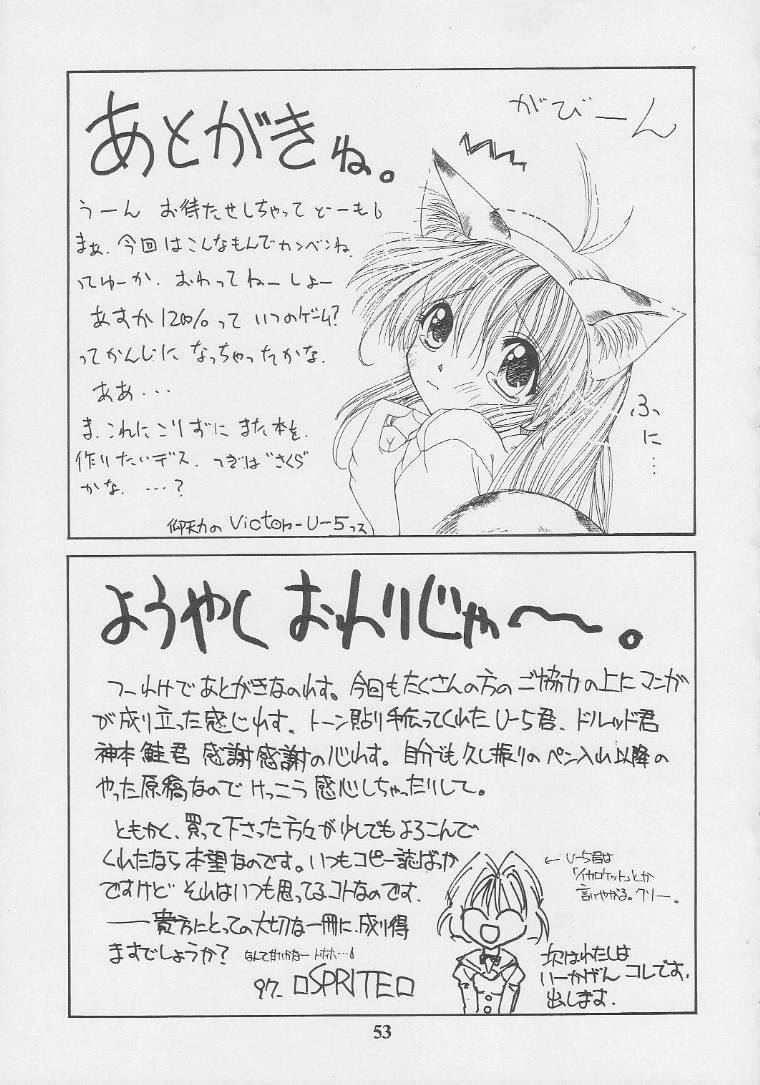 あとがきね。
がびーん
うーん お待たせしちゃって どーも
まぁ、今回はこんなもんでカンベンね
ってゆーか、おわってねーしょー
あすか120%って いつのゲーム?
ってかんじに なっちゃったかな、
ああ・・・
ま、これにこりずに また本を、
作りたいデス、つぎは"さくら"
かな、・・・?
ふに…
Victor-U-5っス
ようやく おわりじゃ〜〜。
つーわけであとがきなのれす。今回もたくさんの方のご協力の上にマンガ
が成り立った感じれす、トーン貼り手伝ってくれたU-5君、ドルッド君
神本 鮭君 感謝感謝の心れす。自分でも久し振りのペン入れ以降の
やった原稿なので けっこう 感心しちゃったりして。
ともかく、買って下さった方々が少しでもよろこんで
くれたなら本望なのです。いつもコピー誌ばっか
ですけど それはいつも思ってるコトなのです、
――貴方にとっての大切な一冊に、成り得
ますでしょうか?
97_ □SPRITE□
← U-5君は
「イカロケット」とか
言いやがる。クリー。
次はわたしは
いーかげん コレです、
出します、
53